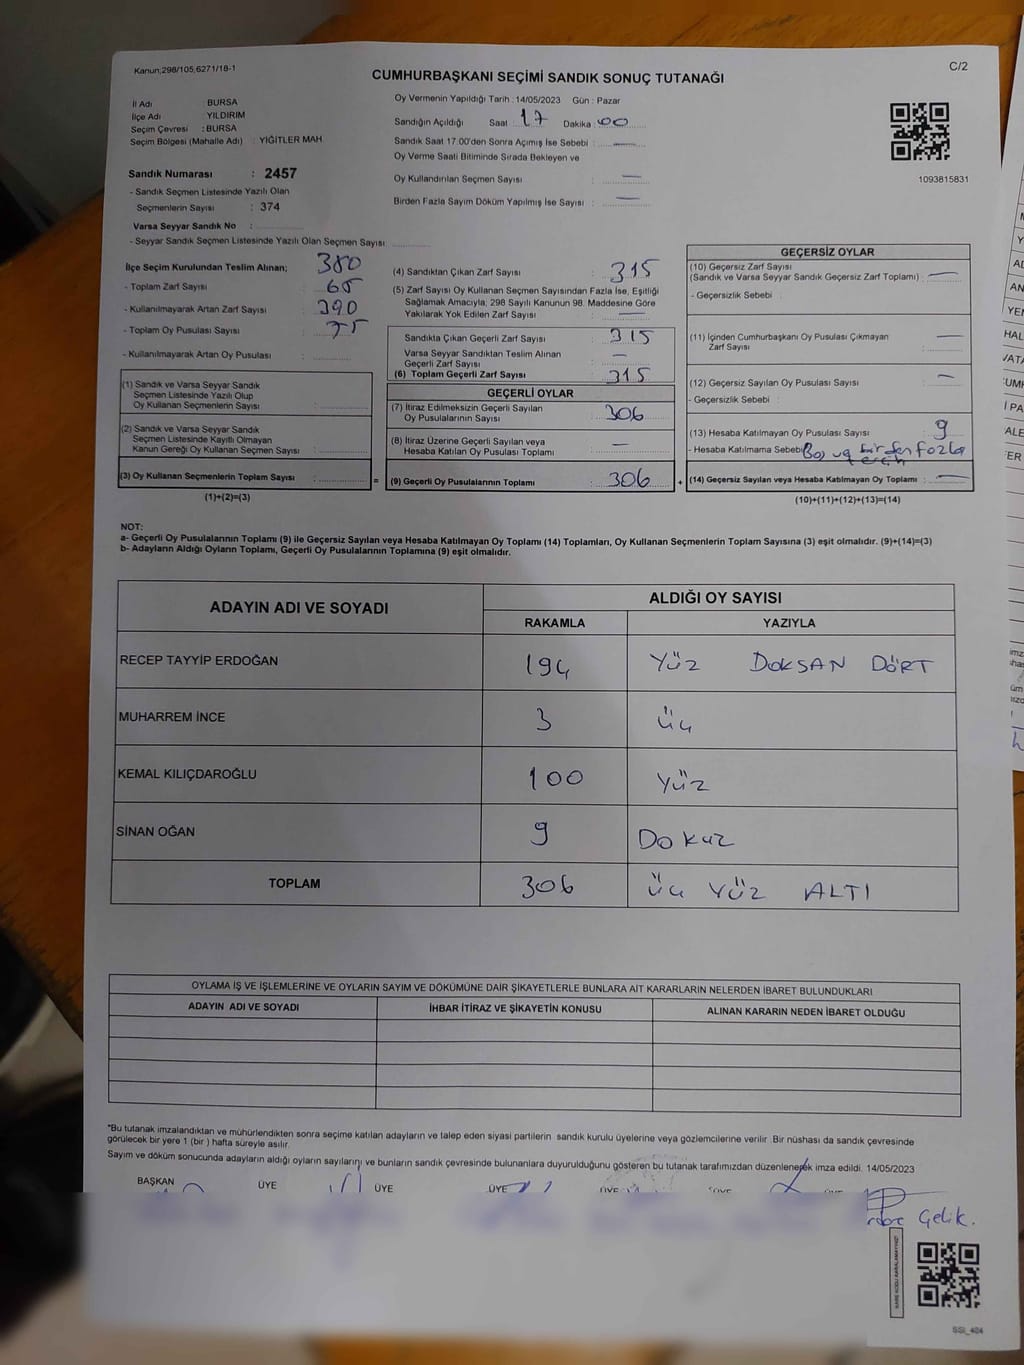 Kanun;298/105,6271/18-1
C/2
CUMHURBAŞKANI SEÇİMİ SANDIK SONUÇ TUTANAĞI
İl Adı : BURSA
İlçe Adı : YILDIRIM
Seçim Çevresi : BURSA
Seçim Bölgesi (Mahalle Adı) : YİĞİTLER MAH
Sandık Numarası : 2457
- Sandık Seçmen Listesinde Yazılı Olan
Seçmenlerin Sayısı : 374
Varsa Seyyar Sandık No :
- Seyyar Sandık Seçmen Listesinde Yazılı Olan Seçmen Sayısı:
Oy Vermenin Yapıldığı Tarih : 14/05/2023 Gün : Pazar
Sandığın Açıldığı Saat : 17 Dakika : 00
Sandık Saat 17.00'den Sonra Açımış İse Sebebi : —
Oy Verme Saati Bitiminde Sırada Bekleyen ve
Oy Kullandırılan Seçmen Sayısı : —
Birden Fazla Sayım Döküm Yapılmış İse Sayısı : —
1093815831
İlçe Seçim Kurulundan Teslim Alınan;
- Toplam Zarf Sayısı : 380
- Kullanılmayarak Artan Zarf Sayısı : 65
- Toplam Oy Pusulası Sayısı : 390
- Kullanılmayarak Artan Oy Pusulası : 75
(1) Sandık ve Varsa Seyyar Sandık
Seçmen Listesinde Yazılı Olup
Oy Kullanan Seçmenlerin Sayısı :
(2) Sandık ve Varsa Seyyar Sandık
Seçmen Listesinde Kayıtlı Olmayan
Kanun Gereği Oy Kullanan Seçmen Sayısı :
(3) Oy Kullanan Seçmenlerin Toplam Sayısı : =
(1)+(2)=(3)
(4) Sandıktan Çıkan Zarf Sayısı : 315
(5) Zarf Sayısı Oy Kullanan Seçmen Sayısından Fazla İse, Eşitliği
Sağlamak Amacıyla; 298 Sayılı Kanunun 98. Maddesine Göre
Yakılarak Yok Edilen Zarf Sayısı : —
Sandıkta Çıkan Geçerli Zarf Sayısı : 315
Varsa Seyyar Sandıktan Teslim Alınan
Geçerli Zarf Sayısı : —
(6) Toplam Geçerli Zarf Sayısı : 315
GEÇERLİ OYLAR
(7) İtiraz Edilmeksizin Geçerli Sayılan
Oy Pusulalarının Sayısı : 306
(8) İtiraz Üzerine Geçerli Sayılan veya
Hesaba Katılan Oy Pusulası Toplamı : —
(9) Geçerli Oy Pusulalarının Toplamı : 306 +
GEÇERSİZ OYLAR
(10) Geçersiz Zarf Sayısı
(Sandık ve Varsa Seyyar Sandık Geçersiz Zarf Toplamı) : —
- Geçersizlik Sebebi :
(11) İçinden Cumhurbaşkanı Oy Pusulası Çıkmayan
Zarf Sayısı : —
(12) Geçersiz Sayılan Oy Pusulası Sayısı : —
- Geçersizlik Sebebi :
(13) Hesaba Katılmayan Oy Pusulası Sayısı : 9
- Hesaba Katılmama Sebebi birden fazla
(14) Geçersiz Sayılan veya Hesaba Katılmayan Oy Toplamı : —
(10)+(11)+(12)+(13)=(14)
NOT:
a- Geçerli Oy Pusulalarının Toplamı (9) ile Geçersiz Sayılan veya Hesaba Katılmayan Oy Toplamı (14) Toplamları, Oy Kullanan Seçmenlerin Toplam Sayısına (3) eşit olmalıdır. (9)+(14)=(3)
b- Adayların Aldığı Oyların Toplamı, Geçerli Oy Pusulalarının Toplamına (9) eşit olmalıdır.
ADAYIN ADI VE SOYADI
ALDIĞI OY SAYISI
RAKAMLA YAZIYLA
RECEP TAYYİP ERDOĞAN 194 YÜZ DOKSAN DÖRT
MUHARREM İNCE 3 Üç
KEMAL KILIÇDAROĞLU 100 YÜZ
SİNAN OĞAN 9 Dokuz
TOPLAM 306 Üç YÜZ ALTI
OYLAMA İŞ VE İŞLEMLERİNE VE OYLARIN SAYIM VE DÖKÜMÜNE DAİR ŞİKAYETLERLE BUNLARA AİT KARARLARIN NELERDEN İBARET BULUNDUKLARI
ADAYIN ADI VE SOYADI İHBAR İTİRAZ VE ŞİKAYETİN KONUSU ALINAN KARARIN NEDEN İBARET OLDUĞU
*Bu tutanak imzalandıktan ve mühürlendikten sonra seçime katılan adayların ve talep eden siyasi partilerin sandık kurulu üyelerine veya gözlemcilerine verilir .Bir nüshası da sandık çevresinde
görülecek bir yere 1 (bir ) hafta süreyle asılır.
Sayım ve döküm sonucunda adayların aldığı oyların sayılarını ve bunların sandık çevresinde bulunanlara duyurulduğunu gösteren bu tutanak tarafımızdan düzenlenerek imza edildi. 14/05/2023
BAŞKAN ÜYE ÜYE ÜYE
Çelik.
SSİ_404